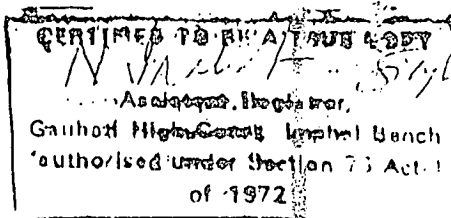 CERTIFIED TO BE A TRUE COPY
Assistant Registrar,
Gauhati High Court Imphal Bench
authorised under Section 76 Act. 1
of 1972